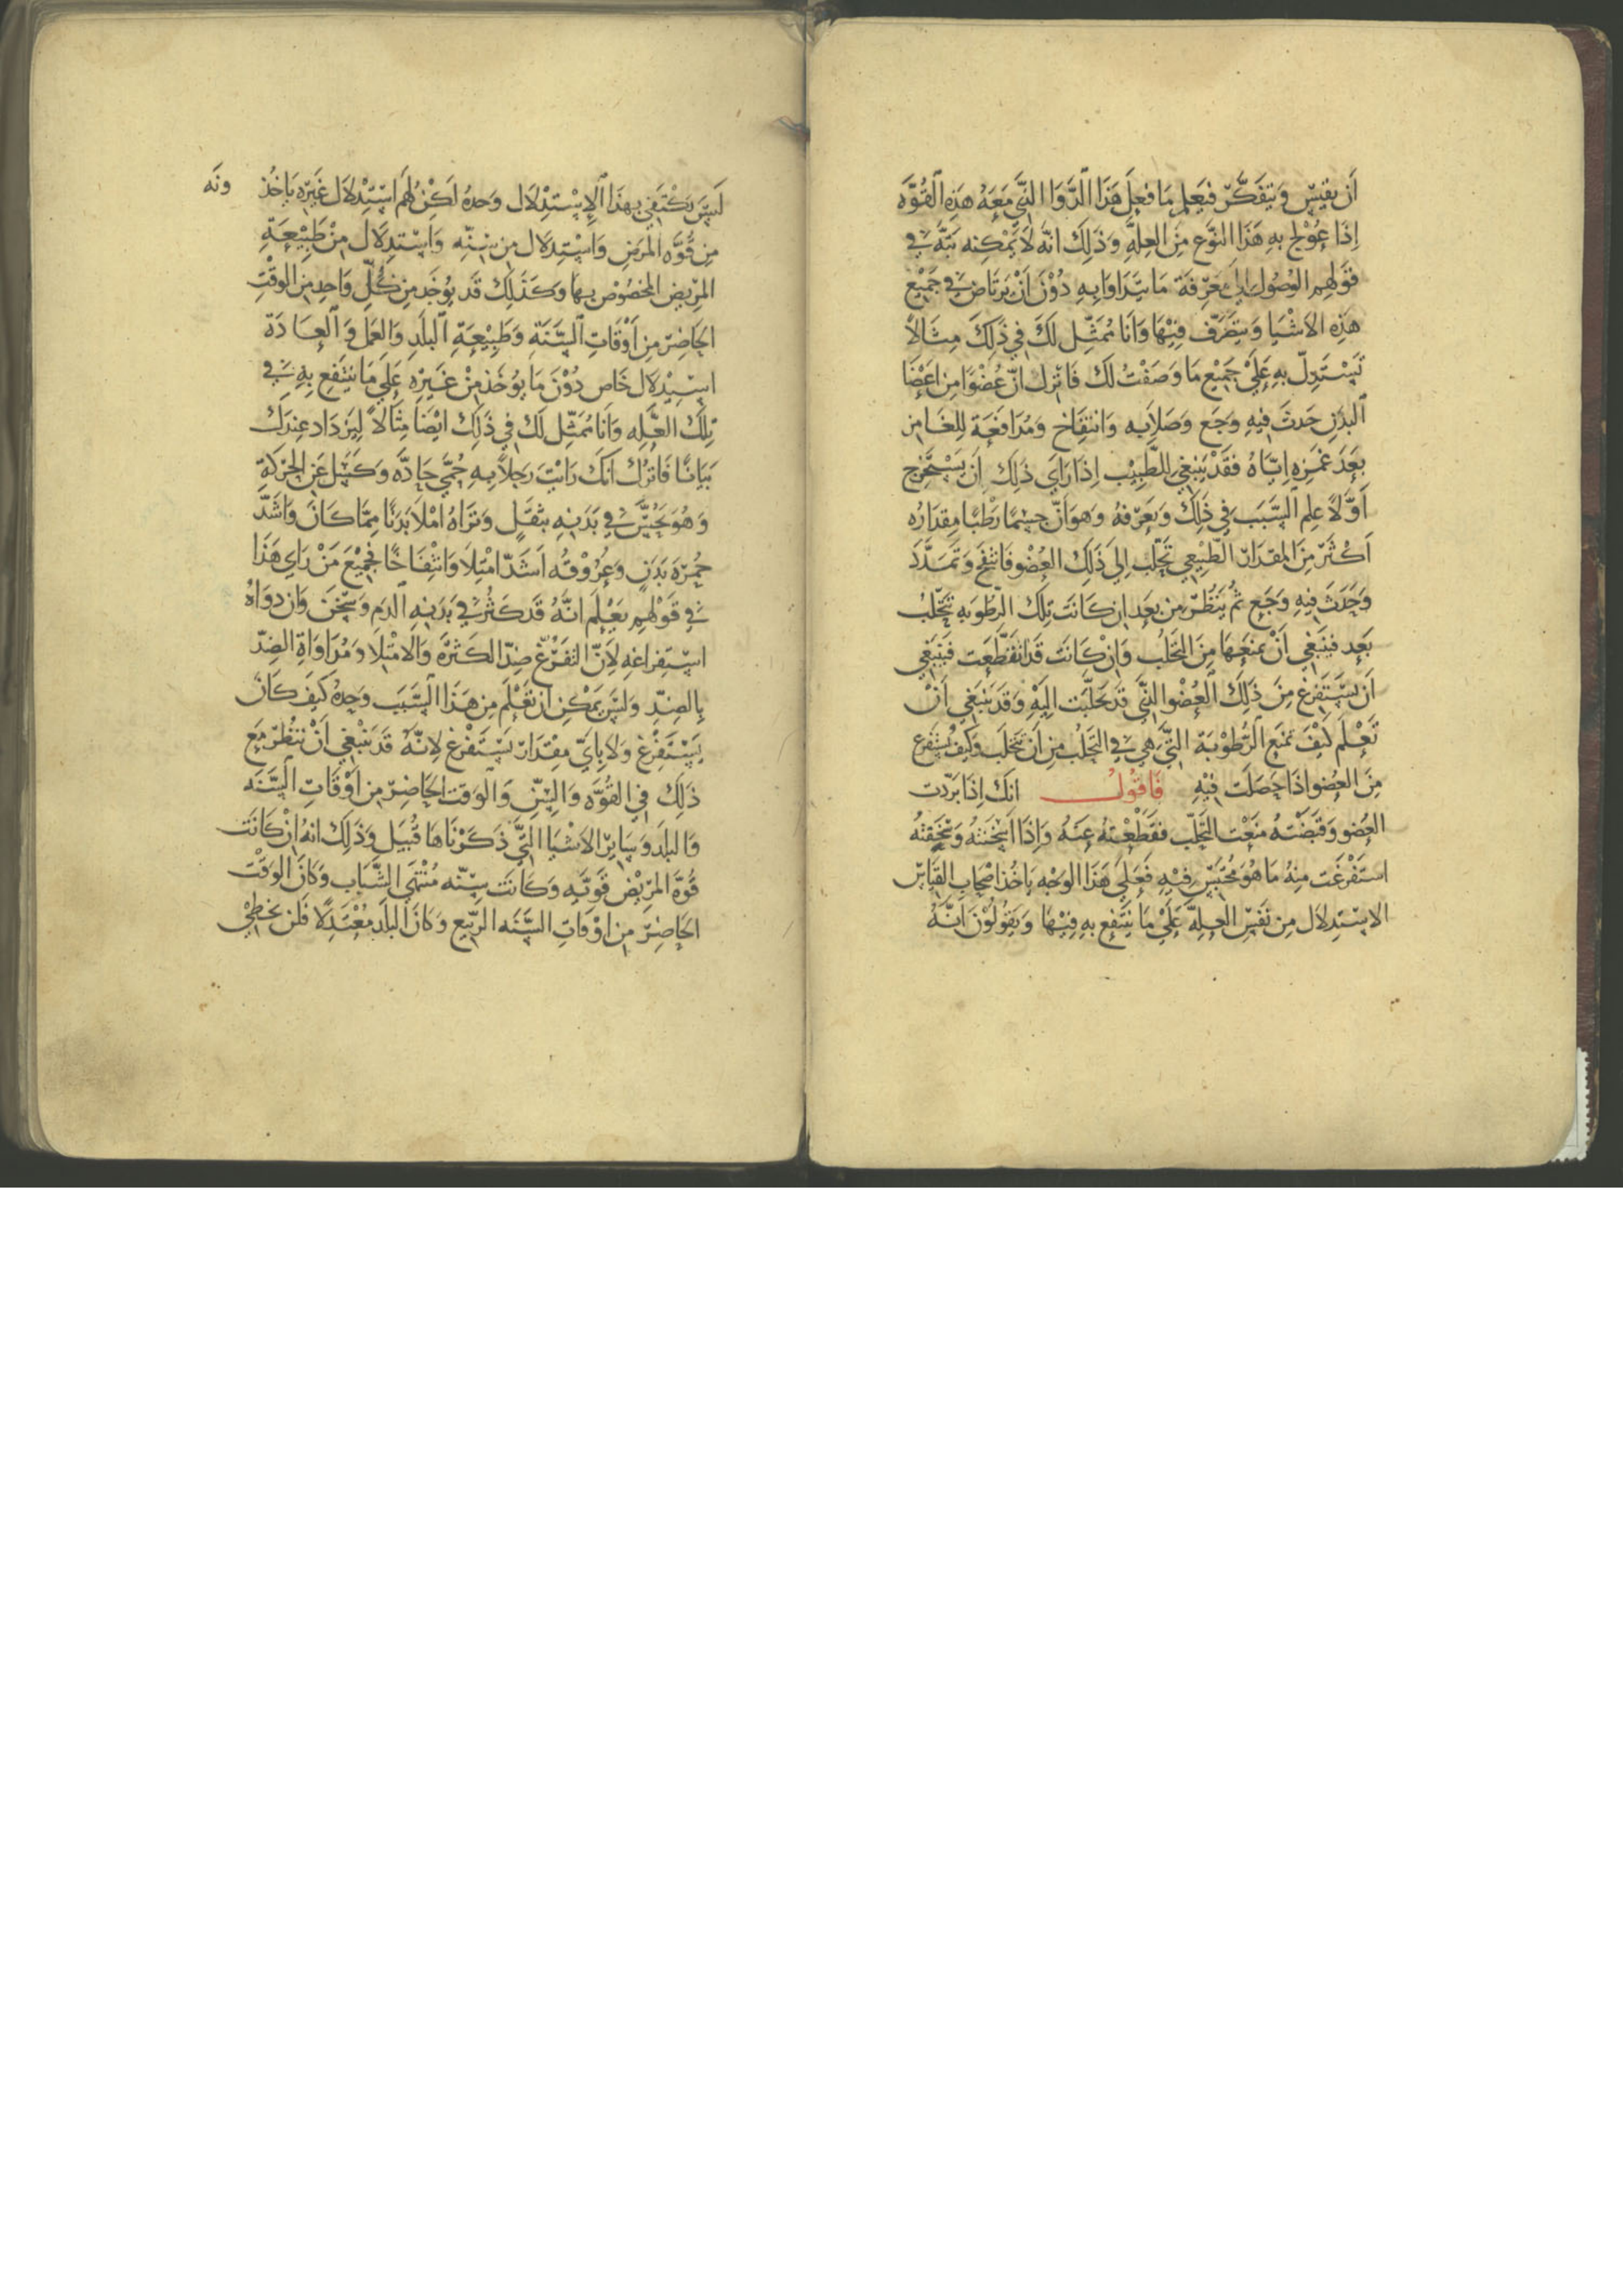 اَن يقيسَ وَيتفَكّر فيَعلم مَا فعِل هَذَا الدَّوَا الذَّي مَعَهُ هَذِهِ القُوَّه
إذَا عُوْلج بهِ هَذَا النوَّع مِنَ العِلهِّ وَذَلِكَ انهّ لَا يَمْكِنه بَتّهَ في
قوَلهِم الوُصُول الى معَرّفَة مَا يتَدَاوَا بهِ دُوْنَ اَنْ يَرتَاضَ في جَميْع
هَذِهِ الاَشْيَا وَيتصَرَّفَ فيْهَا وَاَنَا مُمَثّل لكَ في ذَلِكَ مِثَالاً
تَسْتَدِلّ بهِ عَلَيْ جَميْع مَا وَصَفْتُ لكَ فَانْزِلْ انّ عُضْوًا مِن اعَضَا
اَلبدَنِ حَدثَ فيهِ وَجَع وَصَلاَبه وَانتفَاخ وَمُدَافعَة لِلغَامِزِ
بعَدَ غمَزِهِ ايّاهُ فقَدْ يَنبغي للطَّبِيْبِ اِذَا رَايَ ذَلِكَ اَن يَسْتَخرِج
اَوّلًا عِلم اَلسَّبَبَ في ذَلِكَ وَيعَرّفهُ وَهوَ انّ جسْمًا رَطْبًا مِقدَارُه
اَكْثَرَ مِنَ المقدَارِ الطّبْيعي تحَلّبَ الي ذَلِكَ العُضْو فَانتفَخَ وَتمَدَّدَ
وَحَدَثَ فيهِ وَجَع ثمُ يَنظُر مِن بعَد ان كَانَت تلِكَ الرّطوبه تتَحَلّبُ
بَعد فينَبغي اَنْ يمَنعَهَا مِنَ التّحَلُب وَانْ كَانَت قَد انقَطَعت فيَنبَغي
اَن يسَتفَرغ مِنَ ذَلِكَ العُضْو الذَّي قَد تحَلّبَت اليَهِ وَقَد يَنبَغي اَنْ
تَعْلَم كَيْفَ تمنَع الرّطُوْبَة التَّي هِي في التحَلُب مِن اَنْ تتَحَلَّبَ وَكَيفَ يُستَفرَغ
مِنَ العُضو اذَا حَصَلَت فيْهِ فَاقوُلُ انكَ اِذَا برَّدت
العُضو وَقبَضْتَهُ منَعْت التحَلّب فقَطَعْتهُ عنَهُ وَاِذَا اَسْخَنتهُ
استَفْرغَت مِنْهُ مَا هُوَ مُحْتَبسٌ فيْهِ فَعلَيَ هَذَا الوَجْه يَاخُذ اصْحَاب القيَاس
الاسْتدِلاَل مِن نفَسِ العِلهَّ عَلَيْ مَا ينَتفِع بهِ فيْهَا وَيَقولُوْنَ انّهُ
لَيسَ يكْتَفي بهذَا اَلاِسْتدْلاَل وَحدهُ لكِنْ لهُم اسْتدِلاَل غَيرَه يَاخُذ ونَه
مِن قُوَّه المرَيض وَاسْتِدلاَل مِن سِنّهِ وَاسْتدِلاَل مِنْ طَبِيْعَةِ
المرّيض المخصُوْص بهَا وَكذَلِكَ قَد يوُخَذ مِن كُلّ وَاحدٍ مِن الوقْتِ
الحَاضِر مِن اَوْقَاتِ السَّنَةِ وَطَبِيْعَةِ اَلبلَدِ وَالعمَلَ وَ اَلعَادَة
اسْتِدْلاَل خَاص دُوْنَ مَا يوُخَذ مِنْ غَيرِهِ عَلي مَا ينتَفع بهِ في
تلِكَ العّلِه وَانَا مُمَثّل لكَ في ذَلِكَ ايْضًا مِثَالاً ليَزدَاد عِندَكَ
بيَانًا فَانزِلْ انكَ رَايْتَ رَجلاً بهِ حُمَّي حَادَّه وَكسَل عَنِ الحرَكةِ
وَهُوَ يحُسَّ في بَدنهِ بثقَلٍ وَترَاهُ امْلاَ بدَنًا ممّا كَانَ وَاشَدّ
حُمرَة بَدَنٍ وَعُرُوقُه اَشَدّ امْتِلاَ وَانْتفَاخًا فجَميْعَ مَنْ رَاي هَذَا
في قوَلهِم يعَلَم انّهُ قَد كَثُر في بَدَنهِ الدَم وَسَخُنَ وَان دوَاهُ
اسْتفراغهِ لاَنّ التفَرّغ ضِدّ الكَثرَه وَالامْتلاَ وَمُدَاوَاة الضِدّ
بِالضِدِّ وَليسَ يَمْكِن ان تَعْلَم مِن هَذَا السَّبَبَ وَحدهُ كَيفَ كَان
يسَتَفْرغ وَلَا بِايّ مِقْدَار يَستَفْرغ لانّهُ قَد يَنبَغي اَنْ ننظُر مَع
ذَلِكَ في القوُّه وَالِسّنِ وَالوَقت الحَاضِر مِن اَوْقَاتِ السَّنَه
وَالبلَد وَسَايرِ الاَشْيَا التَّي ذَكَرْنَاهَا قُبيَل وَذَلِكَ انهُ انْ كَانَت
قُوَّة المرّيْض قَوّيَه وَكَانَت سِنّه مُنْتهَي الشَّبَاب وَكَانَ الوَقْت
الحَاضِرَ مِن اوْقَاتِ السَّنَه الرّبَيع وَكَانَ البلَد مُعْتَدِلًا فَلَن يخطِيْ